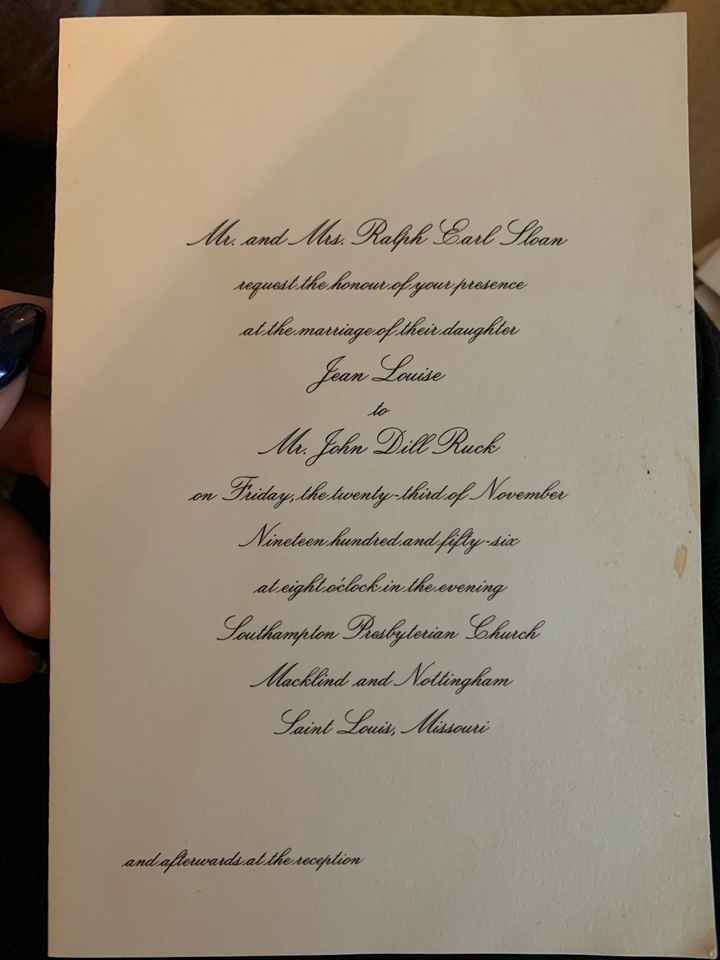 Mr. and Mrs. Ralph Earl Sloan
request the honour of your presence
at the marriage of their daughter
Jean Louise
to
Mr. John Dill Ruck
on Friday, the twenty-third of November
Nineteen hundred and fifty-six
at eight o'clock in the evening
Southampton Presbyterian Church
Macklind and Nottingham
Saint Louis, Missouri
and afterwards at the reception